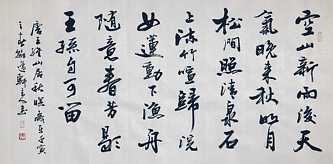 空山新雨後天
氣晚来秋明月
松間照清泉石
上流竹喧歸浣
女蓮動下漁舟
隨意春芳歇
王孫自可留
唐王維山居秋暝